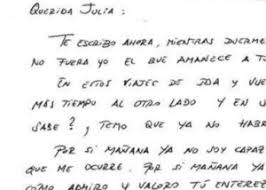 QUERIDA JULIA:
TE ESCRIBO AHORA, MIENTRAS DUERME
NO FUERA YO EL QUE AMANECE A T
EN ESTOS VIAJES DE IDA Y VUE
MÁS TIEMPO AL OTRO LADO Y EN U
SABE?, TEMO QUE YA NO HABR
POR SI MAÑANA YA NO SOY CAPAZ
QUE ME OCURRE. POR SI MAÑANA YA
CÓMO ADMIRO Y VALORO TU ENTERE